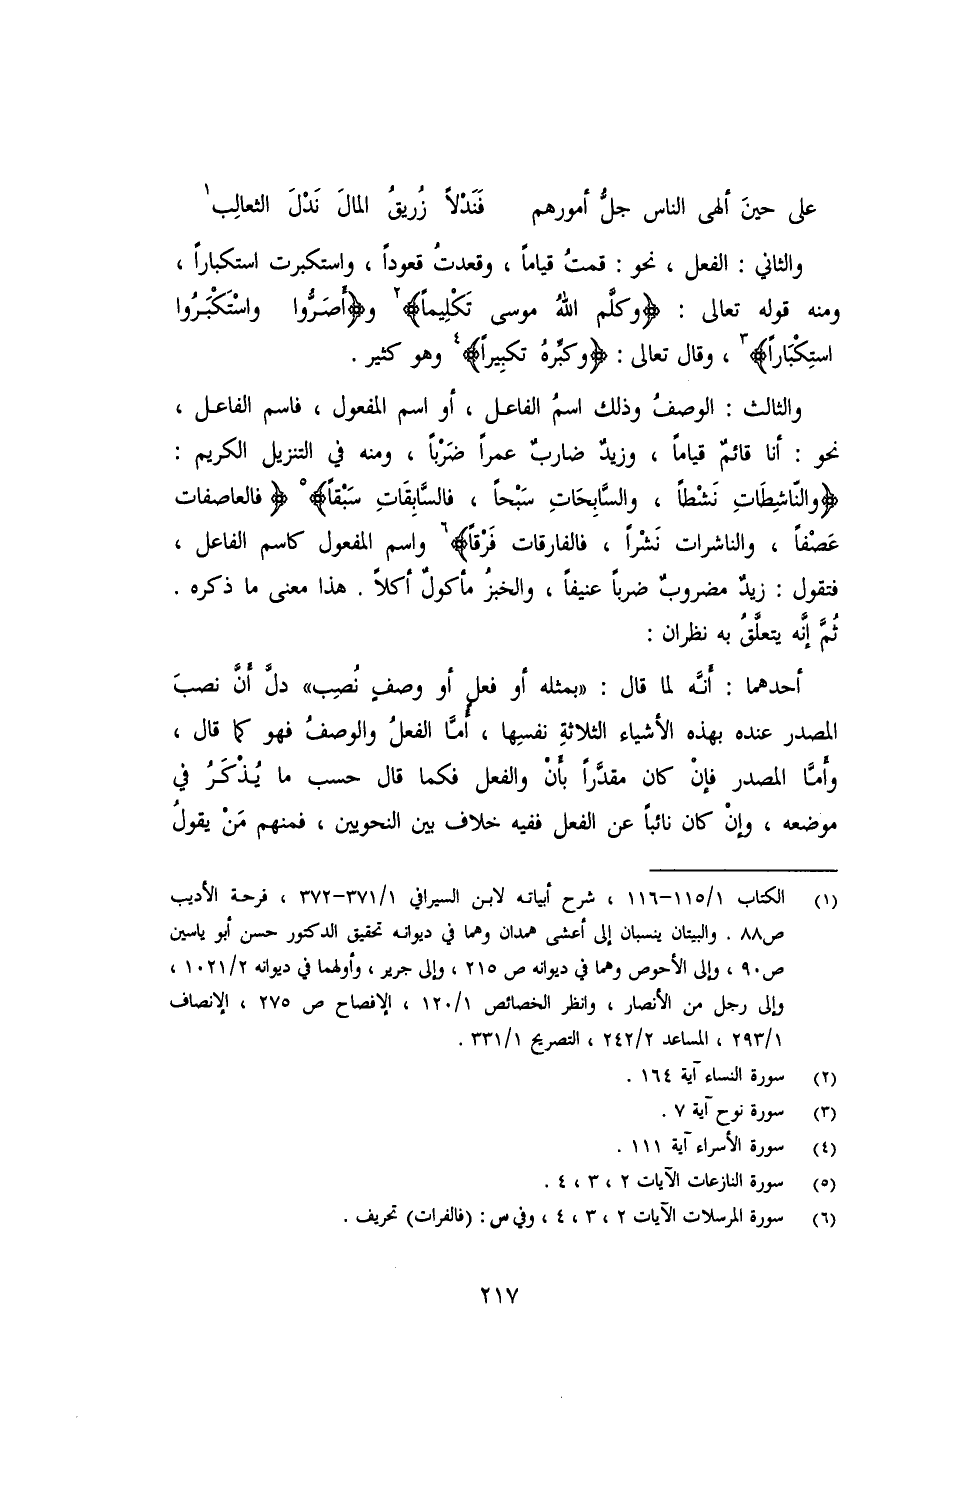 على حينَ ألهى الناس جلُّ أمورهم فَنَدْلاً زُريقُ المالَ نَدْلَ الثعالِب١
والثاني : الفعل ، نحو : قمتُ قياماً ، وقعدتُ قعوداً ، واستكبرت استكباراً ،
ومنه قوله تعالى : ﴿وكلَّم اللهُ موسى تَكْلِيماً﴾٢ و﴿أَصَرُّوا واسْتَكْبَرُوا
استِكْبَاراً﴾٣ ، وقال تعالى : ﴿وكبِّرهُ تكبِيراً﴾٤ وهو كثير .
والثالث : الوصفُ وذلك اسمُ الفاعل ، أو اسم المفعول ، فاسم الفاعل ،
نحو : أنا قائمٌ قياماً ، وزيدٌ ضاربٌ عمراً ضَرْباً ، ومنه في التنزيل الكريم :
﴿والنّاشِطَاتِ نَشْطاً ، والسَّابِحَاتِ سَبْحاً ، فالسَّابِقَات سَبْقاً﴾٥ ﴿ فالعاصفات
عَصْفاً ، والناشرات نَشْراً ، فالفارقات فَرْقاً﴾٦ واسم المفعول كاسم الفاعل ،
فتقول : زيدٌ مضروبٌ ضرباً عنيفاً ، والخبزُ مأكولٌ أكلاً . هذا معنى ما ذكره .
ثُمَّ إنَّه يتعلَّقُ به نظران :
أحدهما : أنَّه لما قال : «بمثله أو فعلٍ أو وصفٍ نُصِب» دلَّ أنَّ نصبَ
المصدر عنده بهذه الأشياء الثلاثةِ نفسِها ، أمَّا الفعلُ والوصفُ فهو كما قال ،
وأمَّا المصدر فإنْ كان مقدَّراً بأَنْ والفعل فكما قال حسب ما يُذْكَرُ في
موضعه ، وإنْ كان نائباً عن الفعل ففيه خلاف بين النحويين ، فمنهم مَنْ يقولُ
(١) الكتاب ١/١١٥–١١٦ ، شرح أبياته لابن السيرافي ١/٣٧١–٣٧٢ ، فرحة الأديب
ص٨٨ . والبيتان ينسبان إلى أعشى همدان وهما في ديوانه تحقيق الدكتور حسن أبو ياسين
ص٩٠ ، وإلى الأحوص وهما في ديوانه ص ٢١٥ ، وإلى جرير ، وأولهما في ديوانه ١٠٢١/٢ ،
وإلى رجل من الأنصار ، وانظر الخصائص ١٢٠/١ ، الإفصاح ص ٢٧٥ ، الإنصاف
٢٩٣/١ ، المساعد ٢٤٢/٢ ، التصريح ٣٣١/١ .
(٢) سورة النساء آية ١٦٤ .
(٣) سورة نوح آية ٧ .
(٤) سورة الأسراء آية ١١١ .
(٥) سورة النازعات الآيات ٢ ، ٣ ، ٤ .
(٦) سورة المرسلات الآيات ٢ ، ٣ ، ٤ ، وفي س : (فالفرات) تحريف .
٢١٧